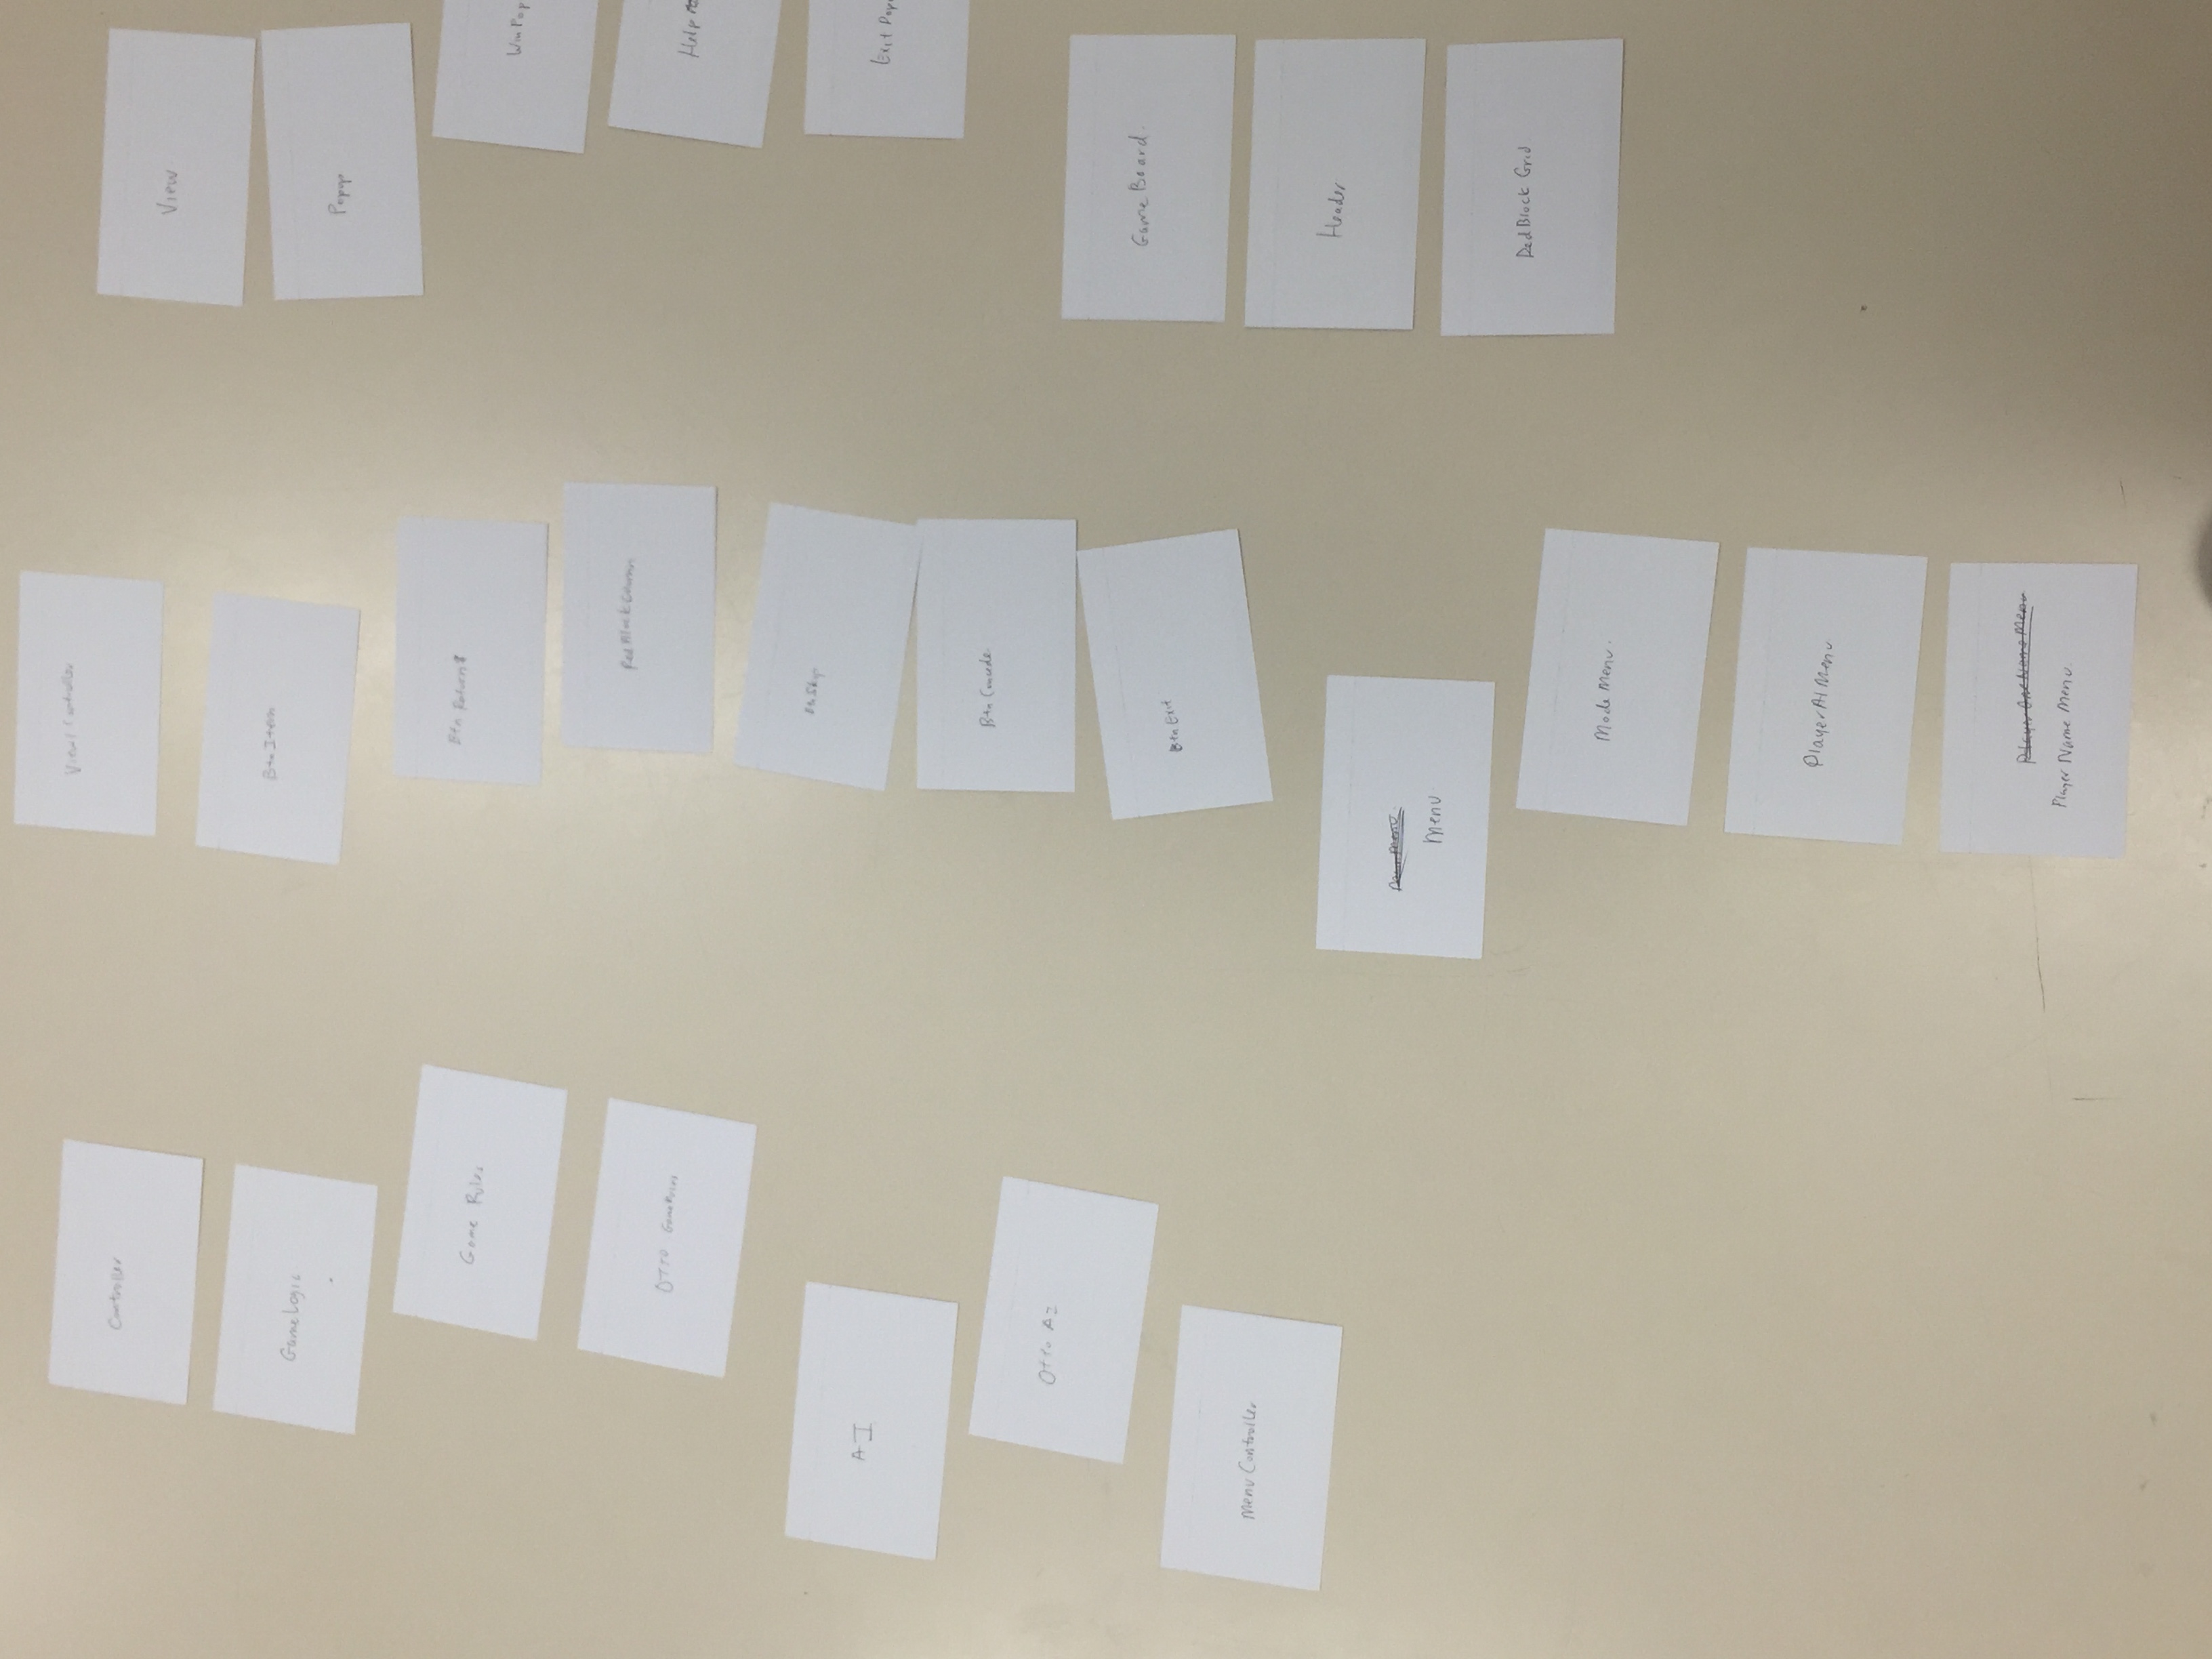 Controller
GameLogic
Game Rules
OTTO GameRules
AI
Otto AI
Menu Controller
View/Controller
Btn Item
Btn Return
RedBlockColumn
Btn Skip
Btn Concede
Btn Exit
Menu
Mode Menu.
PlayerAIMenu
Player One Name Menu
Player Name Menu.
View
Popup
Win Pop
Help
Exit Pop
Game Board.
Header
RedBlock Grid